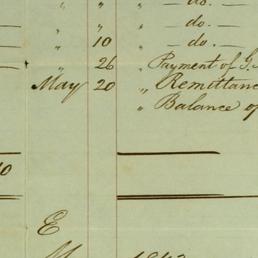 " " " — do. —
— " " " — do. —
— " 10 " — do. —
" 26 " Payment of J.
May 20 " Remittanc
" Balance of
10
E